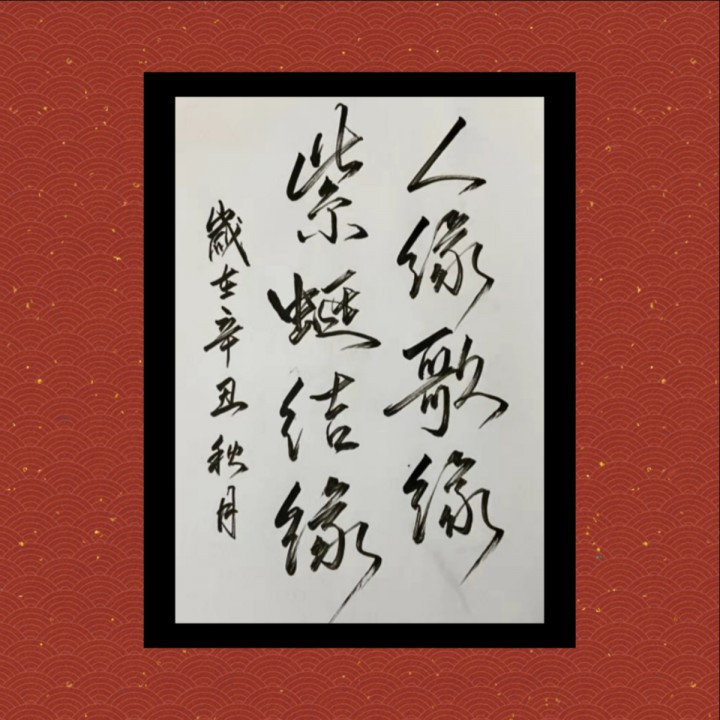 人缘歌缘
紫蜓结缘
歲在辛丑秋月